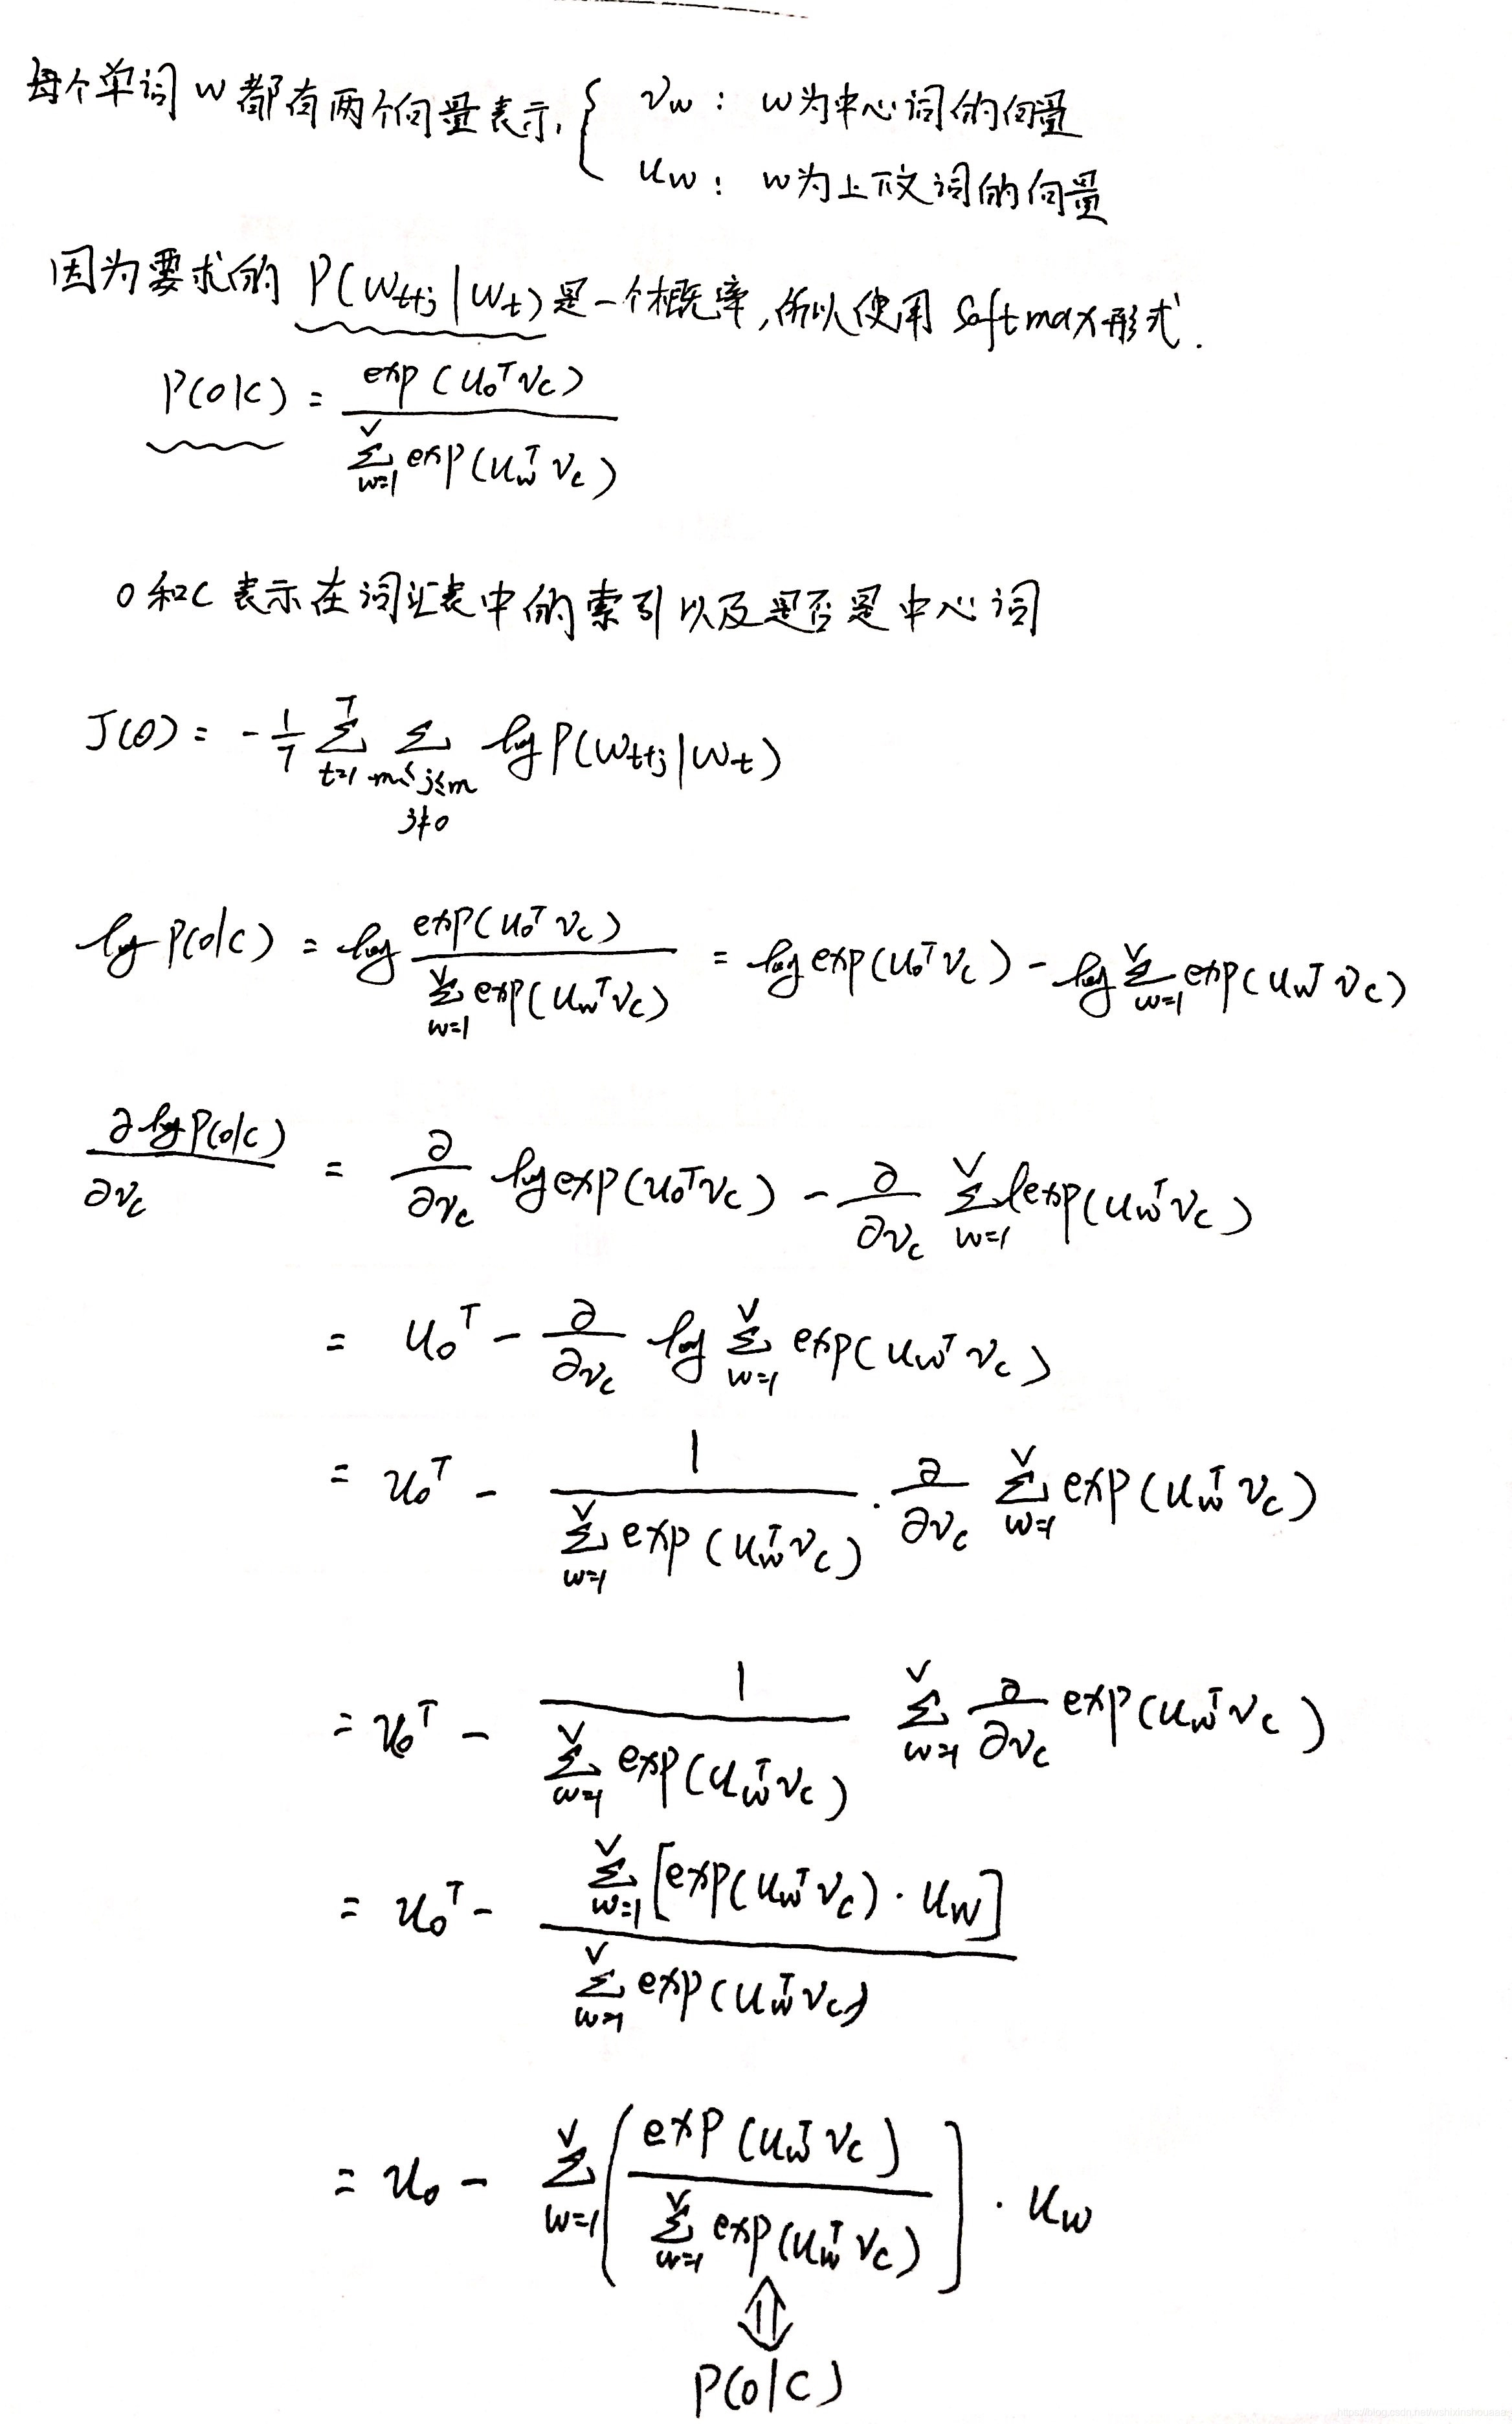 每个单词 w 都有两个向量表示, { v_w : w为中心词的向量
u_w : w为上下文词的向量
因为要求的 P(w_{t+j} | w_t) 是一个概率, 所以使用 softmax 形式.
P(o|c) = exp(u_o^T v_c) / ∑_{w=1}^{V} exp(u_w^T v_c)
o 和 c 表示在词汇表中的索引以及是否是中心词
J(θ) = -1/T ∑_{t=1}^{T} ∑_{-m≤j≤m, j≠0} log P(w_{t+j} | w_t)
log P(o|c) = log exp(u_o^T v_c) / ∑_{w=1}^{V} exp(u_w^T v_c) = log exp(u_o^T v_c) - log ∑_{w=1}^{V} exp(u_w^T v_c)
∂ log P(o|c) / ∂v_c = ∂/∂v_c log exp(u_o^T v_c) - ∂/∂v_c ∑_{w=1}^{V} exp(u_w^T v_c)
= u_o^T - ∂/∂v_c log ∑_{w=1}^{V} exp(u_w^T v_c)
= u_o^T - 1 / ∑_{w=1}^{V} exp(u_w^T v_c) · ∂/∂v_c ∑_{w=1}^{V} exp(u_w^T v_c)
= u_o^T - 1 / ∑_{w=1}^{V} exp(u_w^T v_c) ∑_{w=1}^{V} ∂/∂v_c exp(u_w^T v_c)
= u_o^T - ∑_{w=1}^{V} [exp(u_w^T v_c) · u_w] / ∑_{w=1}^{V} exp(u_w^T v_c)
= u_o - ∑_{w=1}^{V} ( exp(u_w^T v_c) / ∑_{w=1}^{V} exp(u_w^T v_c) ] · u_w
⇕
P(o|c)